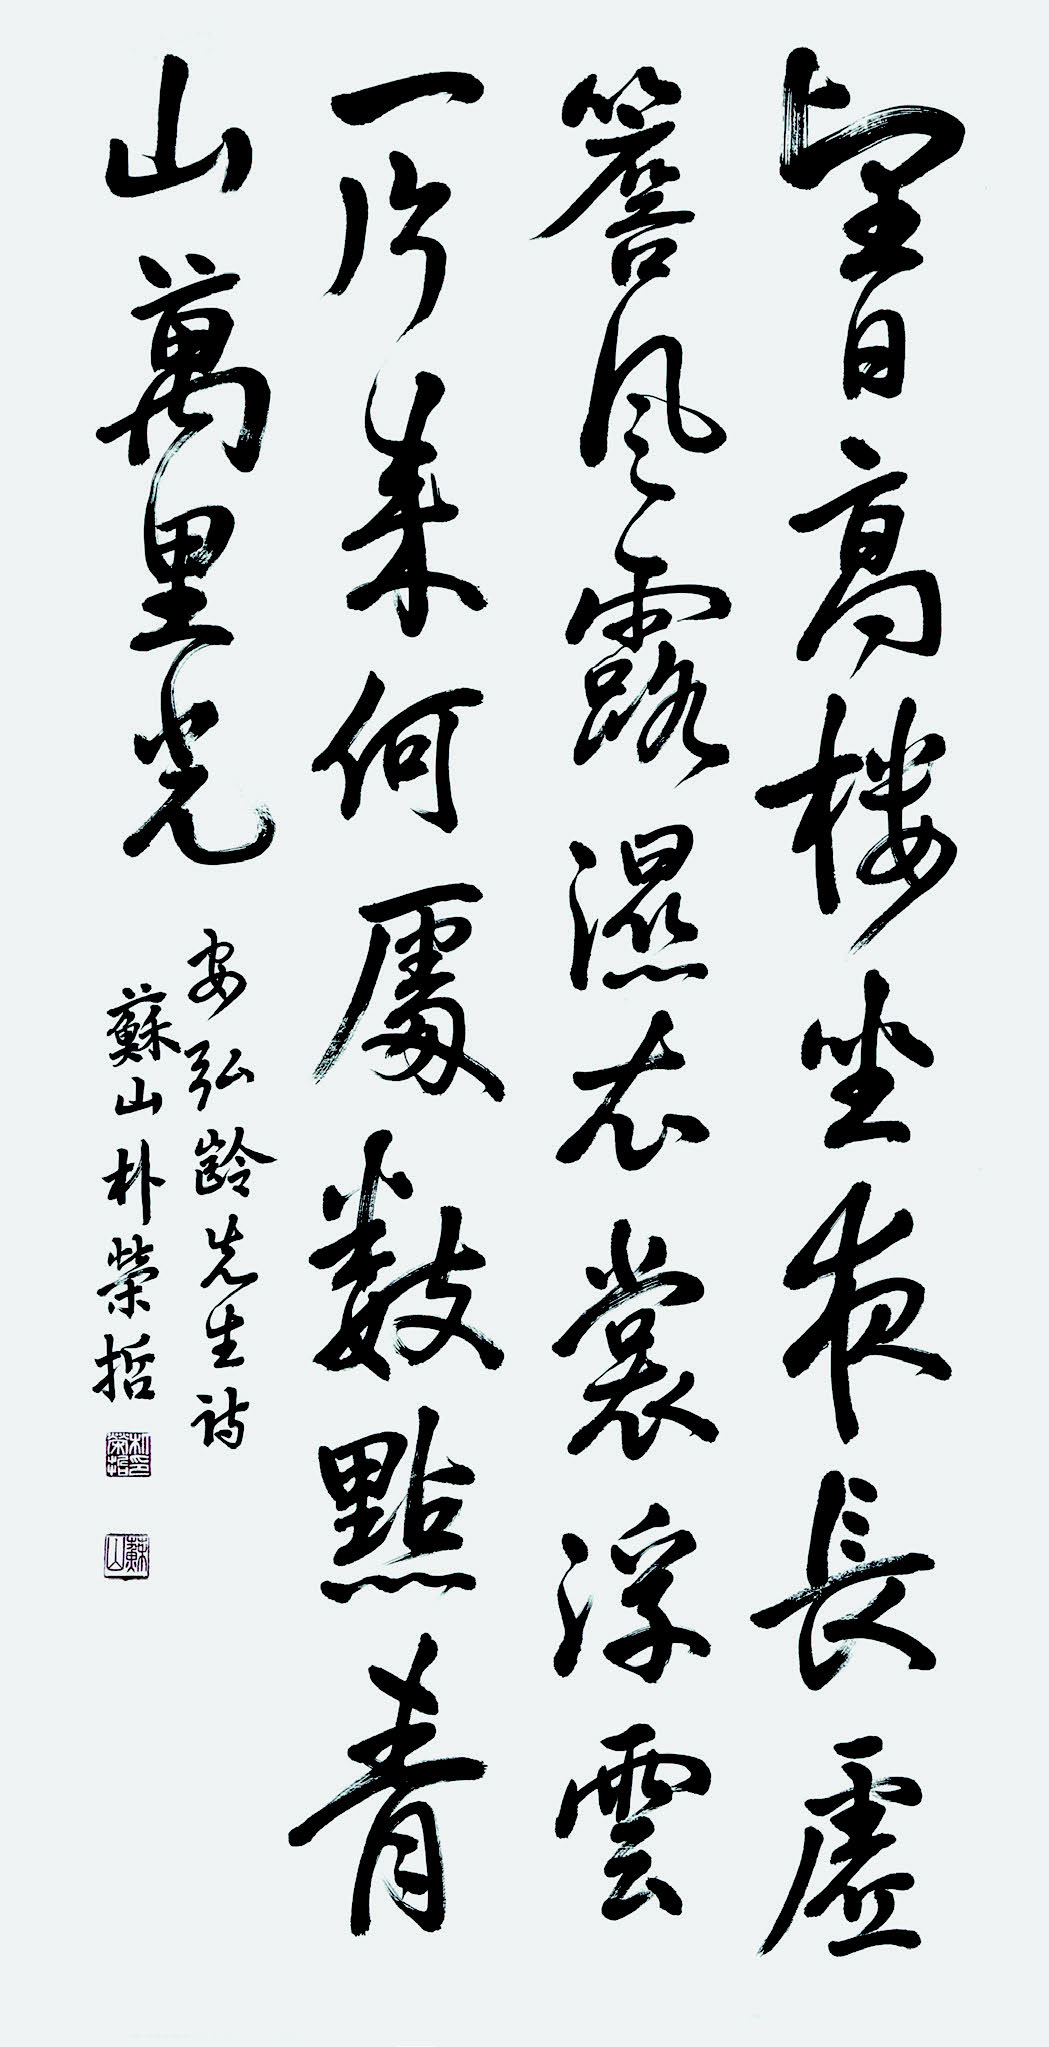 望日高樓坐夜長虛
簷風露濕衣裳浮雲
一片來何處數點青
山萬里光
安弘齡先生詩
蘇山朴榮哲
朴榮哲印
蘇山